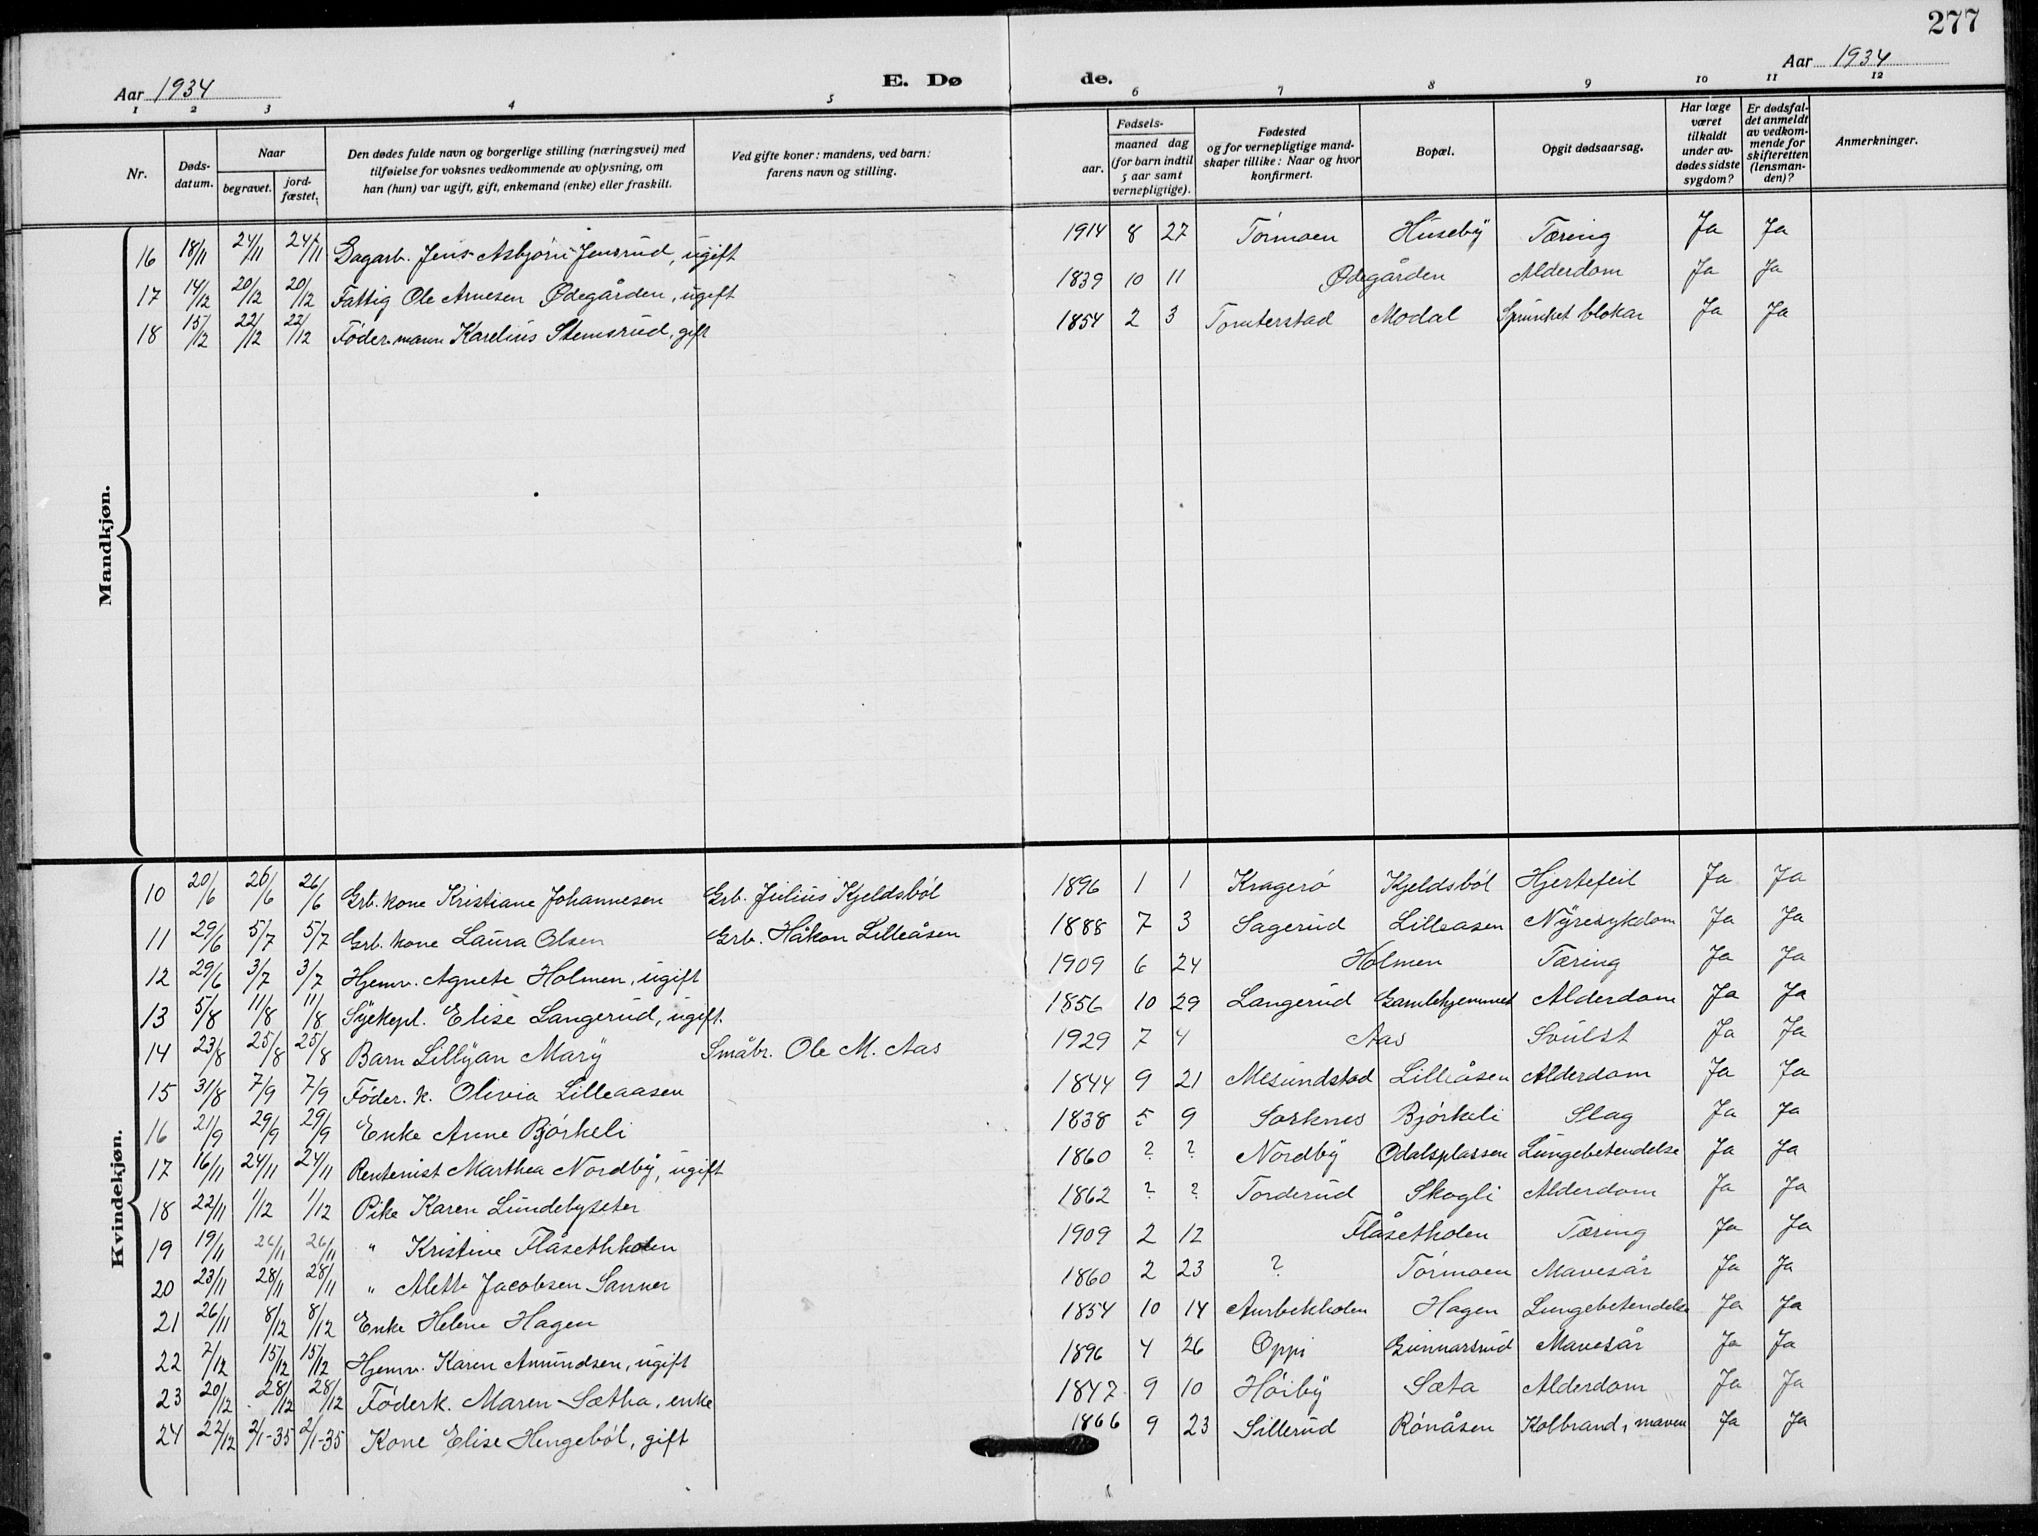 277
Aar 1934
E. Dø de.
Aar 1934
1 2 3 4 5 6 7 8 9 10 11 12
Nr.
Døds-datum.
Naar
begravet.
jord-fæstet.
Den dødes fulde navn og borgerlige stilling (næringsvei) med
tilføielse for voksnes vedkommende av oplysning, om
han (hun) var ugift, gift, enkemand (enke) eller fraskilt.
Ved gifte koner: mandens, ved barn:
farens navn og stilling.
Fødsels-
aar.
maaned dag
(for barn indtil
5 aar samt
vernepligtige).
Fødested
og for vernepligtige mand-
skaper tillike: Naar og hvor
konfirmert.
Bopæl.
Opgit dødsaarsag.
Har læge
været
tilkaldt
under av-
dødes sidste
sygdom?
Er dødsfal-
det anmeldt
av vedkom-
mende for
skifteretten
(lensman-
den)?
Anmerkninger.
Mandkjøn.
16 18/11 24/11 24/11 Dagarb. Jens Asbjørn Jensrud, ugift 1914 8 27 Tormoen Huseby Tæring Ja Ja
17 14/12 20/12 20/12 Fattig Ole Arnesen Ødegården, ugift 1839 10 11 Ødegården Alderdom Ja Ja
18 15/12 22/12 22/12 Föder.mann Karelius Stemsrud, gift 1854 2 3 Tomterstad Modal Sprunket blokar Ja Ja
Kvindekjøn.
10 20/6 26/6 26/6 Grb. kone Kristiane Johannesen Grb. Julius Kjeldsböl 1896 1 1 Kragerö Kjeldsböl Hjertefeil Ja Ja
11 29/6 5/7 5/7 Grb. kone Laura Olsen Grb. Håkon Lilleåsen 1888 7 3 Sagerud Lilleasen Nyresykdom Ja Ja
12 29/6 3/7 3/7 Hjemv. Agnete Holmen, ugift 1909 6 24 Holmen Tæring Ja Ja
13 5/8 11/8 11/8 Sykepl. Elise Langerud, ugift. 1856 10 29 Langerud Gamlehjemmet Alderdom Ja Ja
14 23/8 25/8 25/8 Barn Lillyan Mary Småbr. Ole M. Aas 1929 7 4 Aas Svulst Ja Ja
15 31/8 7/9 7/9 Föder. k. Olivia Lilleaasen 1844 9 21 Mesundstad Lilleåsen Alderdom Ja Ja
16 21/9 29/9 29/9 Enke Anne Björkeli 1838 5 9 Sorknes Björkeli Slag Ja Ja
17 16/11 24/11 24/11 Rentenist Marthea Nordby, ugift 1860 ? ? Nordby Odalsplassen Lungebetendelse Ja Ja
18 22/11 1/12 1/12 Pike Karen Lundebyseter 1862 ? ? Torderud Skogli Alderdom Ja Ja
19 19/11 26/11 26/11 " Kristine Flåsethholen 1909 2 12 Flåsetholen Tæring Ja Ja
20 23/11 28/11 28/11 " Alette Jacobsen Sanner 1860 2 23 ? Tormoen Mavesår Ja Ja
21 26/11 8/12 8/12 Enke Helene Hagen 1854 10 14 Aurbekholen Hagen Lungebetendelse Ja Ja
22 7/12 15/12 15/12 Hjemv. Karen Amundsen, ugift 1896 4 26 Oppi Gunnarsrud Mavesår Ja Ja
23 20/12 28/12 28/12 Föderk. Maren Sætha, enke 1847 9 10 Höiby Sæta Alderdom Ja Ja
24 22/12 2/1-35 2/1-35 Kone Elise Hengeböl, gift 1866 9 23 Sillerud Rönåsen Kolbrand i maven Ja Ja